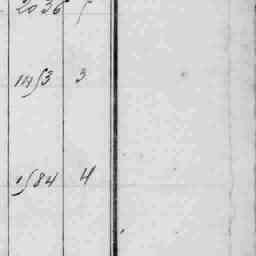 2036
1453 3
1584 4